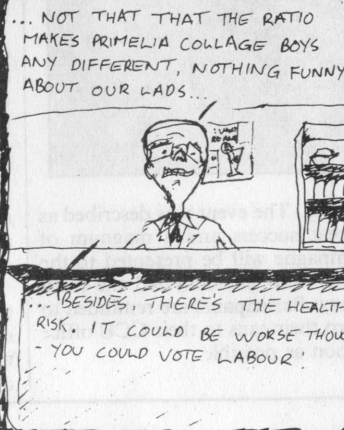 ... NOT THAT THAT THE RATIO
MAKES PRIMELIA COLLAGE BOYS
ANY DIFFERENT, NOTHING FUNNY
ABOUT OUR LADS...
... BESIDES, THERE'S THE HEALTH
RISK. IT COULD BE WORSE THOU
- YOU COULD VOTE LABOUR.